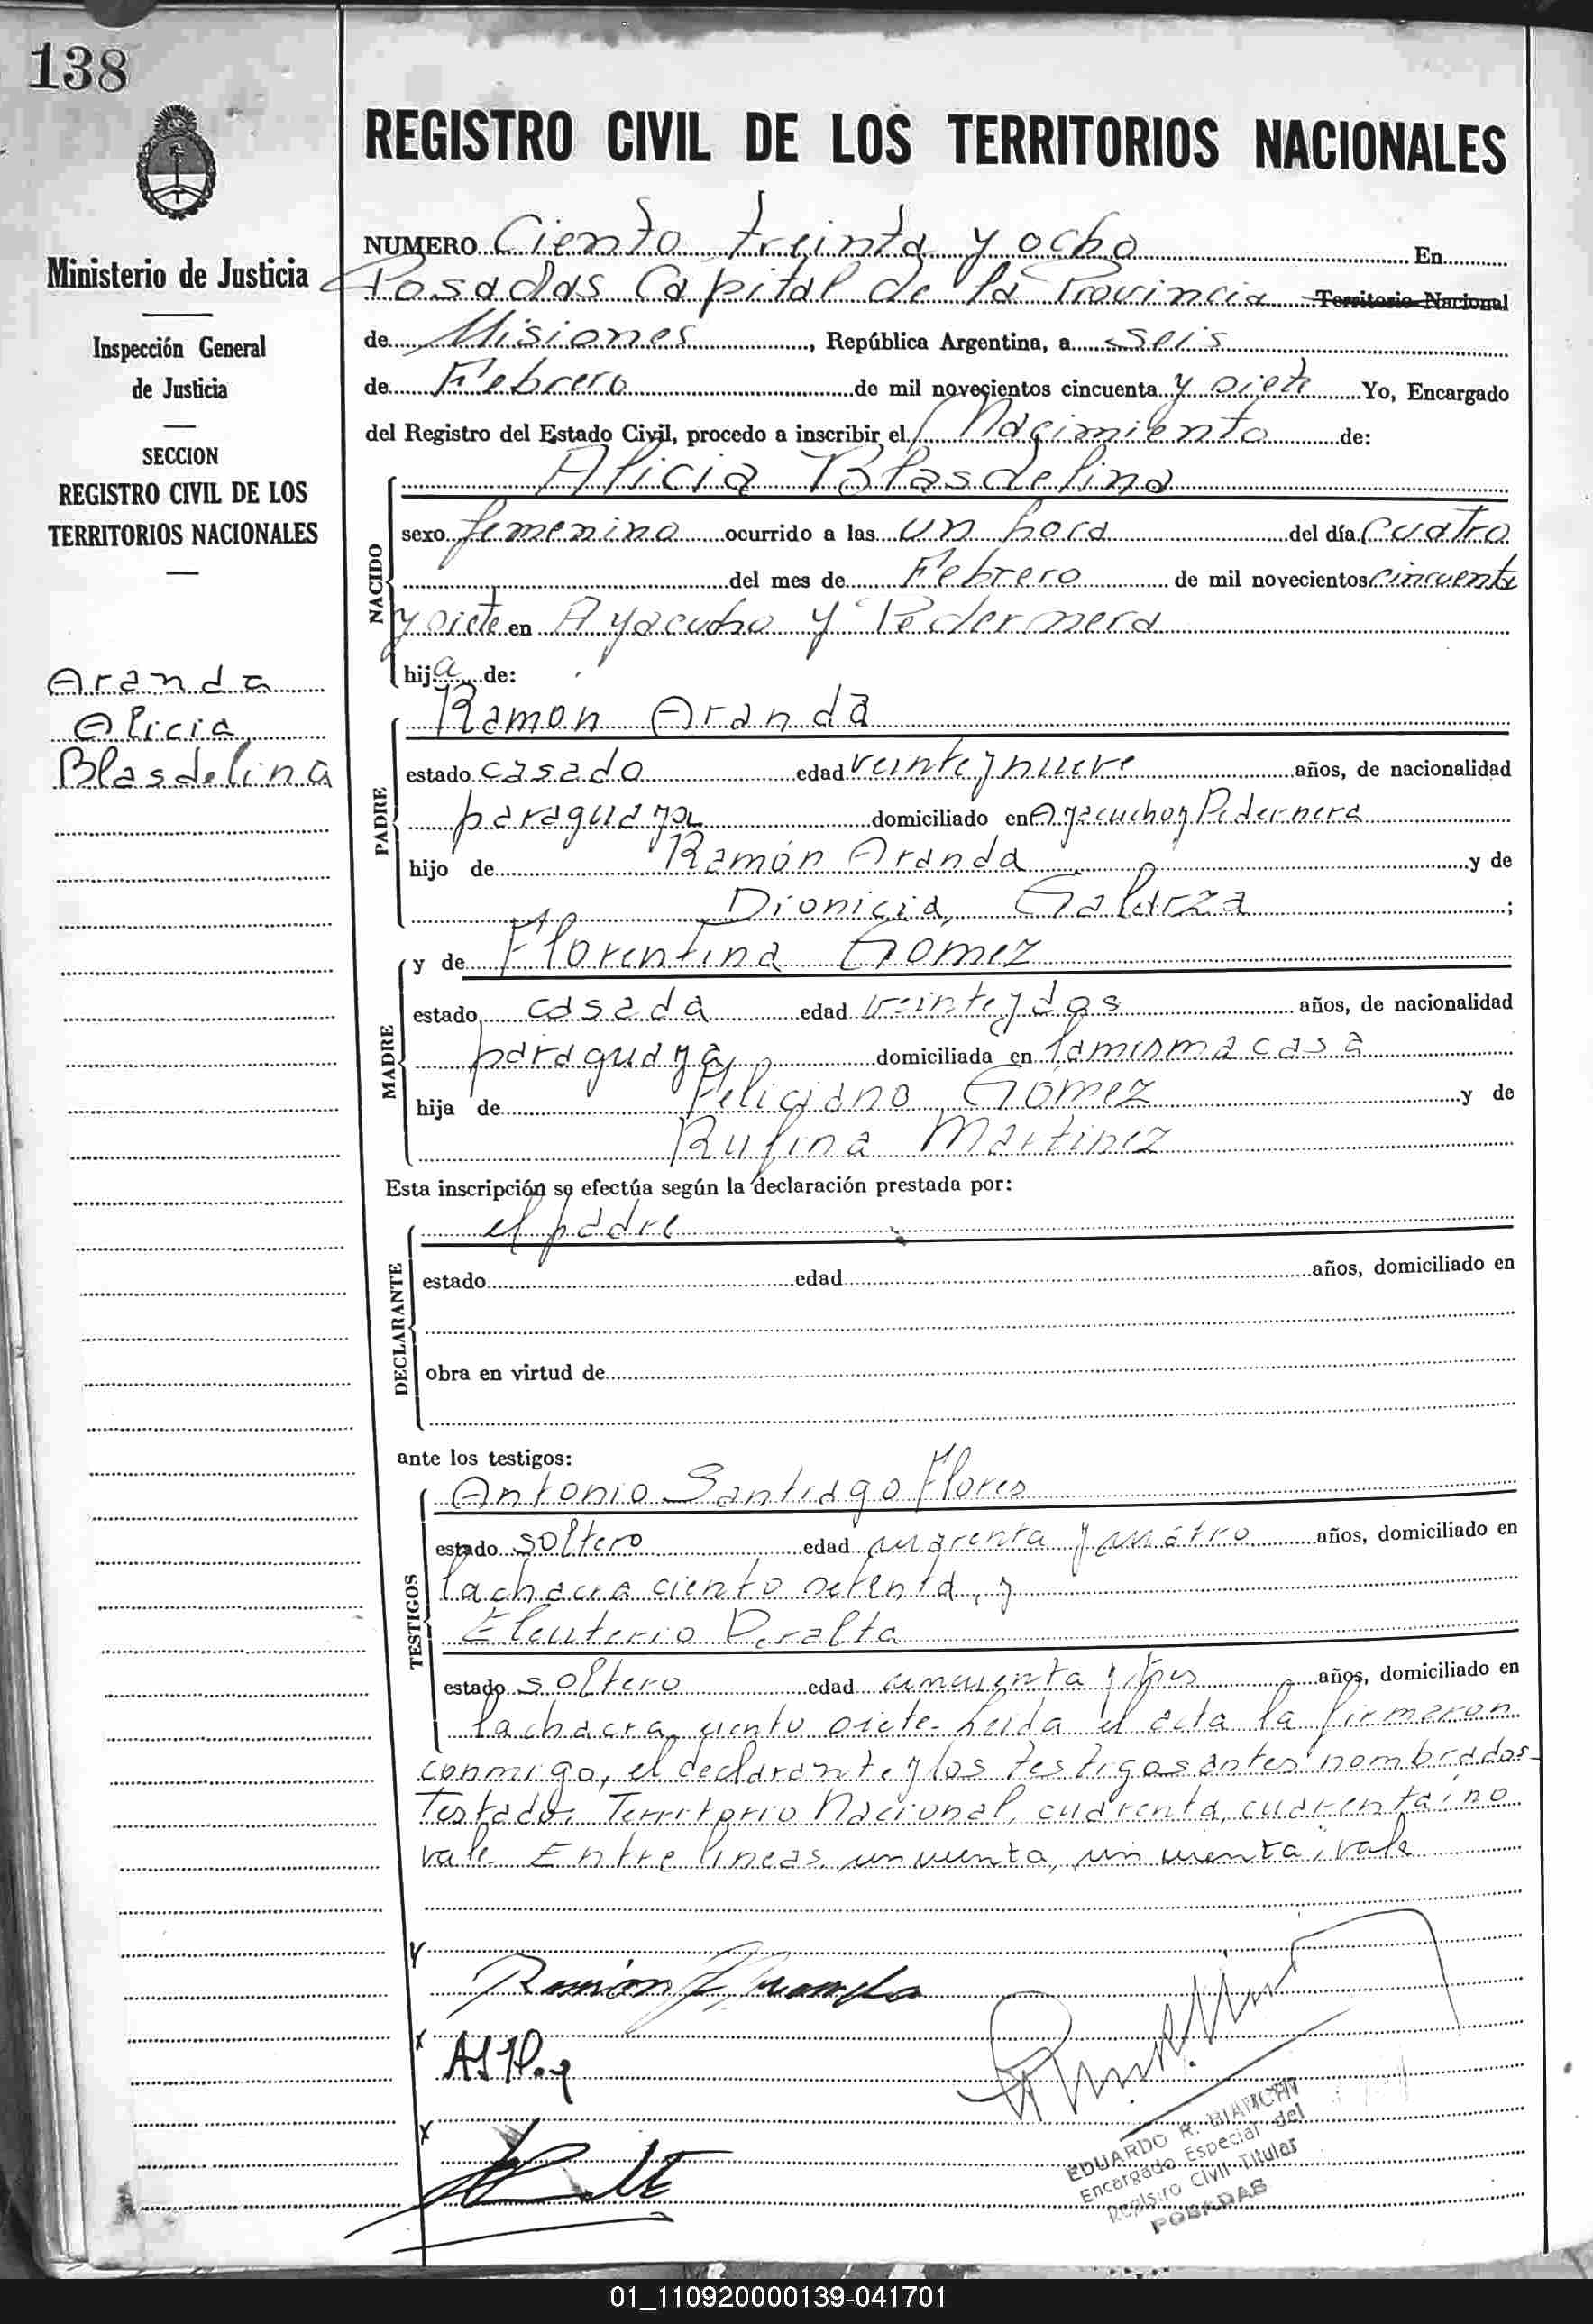 138
REGISTRO CIVIL DE LOS TERRITORIOS NACIONALES
Ministerio de Justicia
Inspección General
de Justicia
SECCION
REGISTRO CIVIL DE LOS
TERRITORIOS NACIONALES
Aranda
Alicia
Blasdelina
NUMERO Ciento treinta y ocho En
Posadas Capital de la Provincia Territorio Nacional
de Misiones, República Argentina, a seis
de Febrero de mil novecientos cincuenta y siete Yo, Encargado
del Registro del Estado Civil, procedo a inscribir el Nacimiento de:
NACIDO
Alicia Blasdelina
sexo femenino ocurrido a las un hora del día cuatro
del mes de Febrero de mil novecientos cincuenta
y siete en Ayacucho y Pedernera
hija de:
PADRE
Ramon Aranda
estado casado edad veinte y nueve años, de nacionalidad
paraguaya domiciliado en Ayacucho y Pedernera
hijo de Ramón Aranda y de
Dionicia Galarza;
MADRE
y de Florentina Gomez
estado casada edad veinte y dos años, de nacionalidad
paraguaya domiciliada en la misma casa
hija de Feliciano Gómez y de
Rufina Martinez
Esta inscripción se efectúa según la declaración prestada por:
DECLARANTE
el padre
estado edad años, domiciliado en
obra en virtud de
ante los testigos:
TESTIGOS
Antonio Santiago Flores
estado soltero edad cuarenta y cuatro años, domiciliado en
la chacra ciento setenta, y
Eleuterio Peralta
estado soltero edad cincuenta y tres años, domiciliado en
la chacra ciento siete- Leida el acta la firmaron
conmigo, el declarante y los testigos antes nombrados-
Testado: Territorio Nacional, cuarenta, cuarenta: no
vale. Entre lineas, cincuenta, cincuenta: vale
Ramón Aranda
EDUARDO R. BIANCHI
Encargado Especial del
Registro Civil Titular
POSADAS
01_110920000139-041701